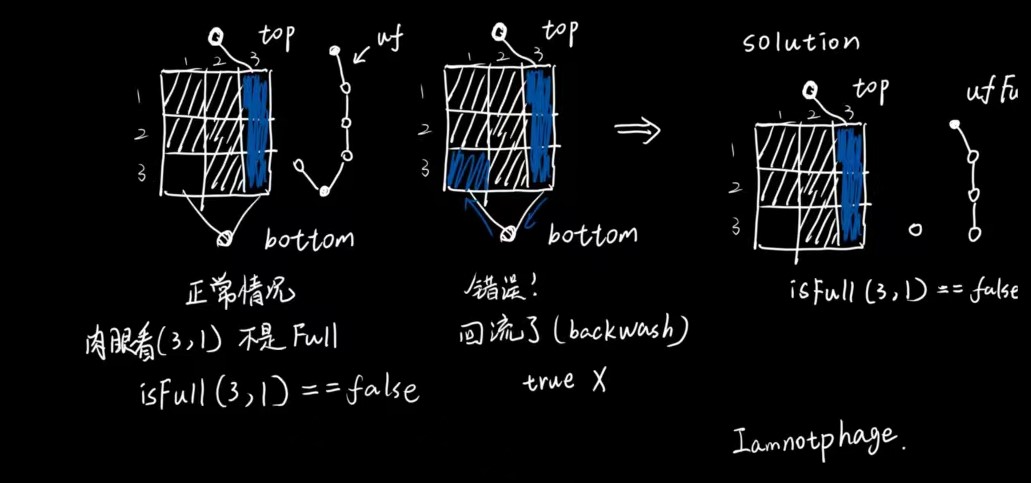 top
uf
1 2 3
1
2
3
bottom
正常情况
肉眼看(3,1) 不是Full
isFull(3,1)==false
top
1 2 3
1
2
3
bottom
错误!
回流了(backwash)
true X
solution
top
ufFu
1 2 3
1
2
3
isFull(3,1)==false
Iamnotphage.